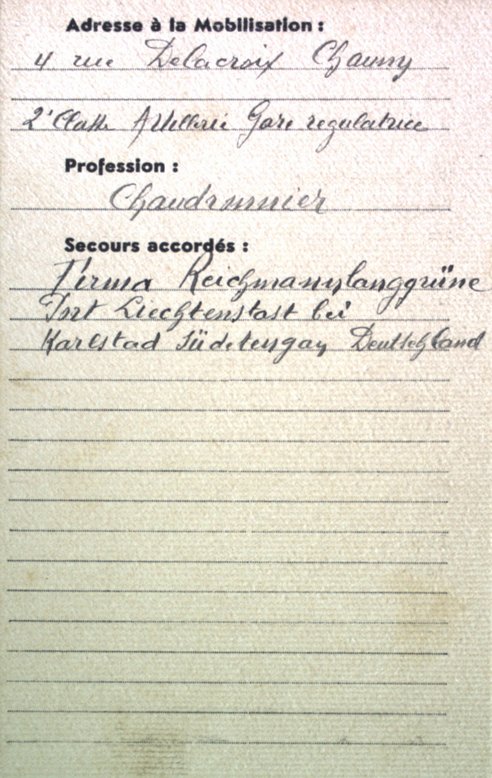 Adresse à la Mobilisation :
4 rue Delacroix Chauny
2e Classe Artillerie Gare regulatrice
Profession :
Chaudronnier
Secours accordés :
Firma Reichmann langgrüne
Liechtenstast bei
Karlstad Südetengau Deutschland